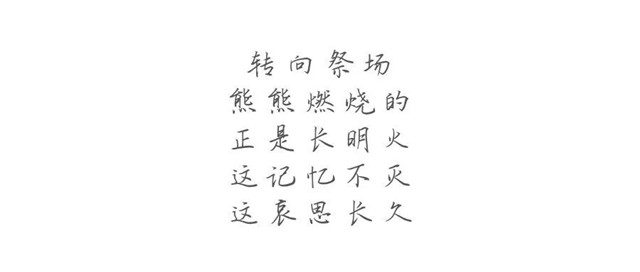 转向祭场
熊熊燃烧的
正是长明火
这记忆不灭
这哀思长久